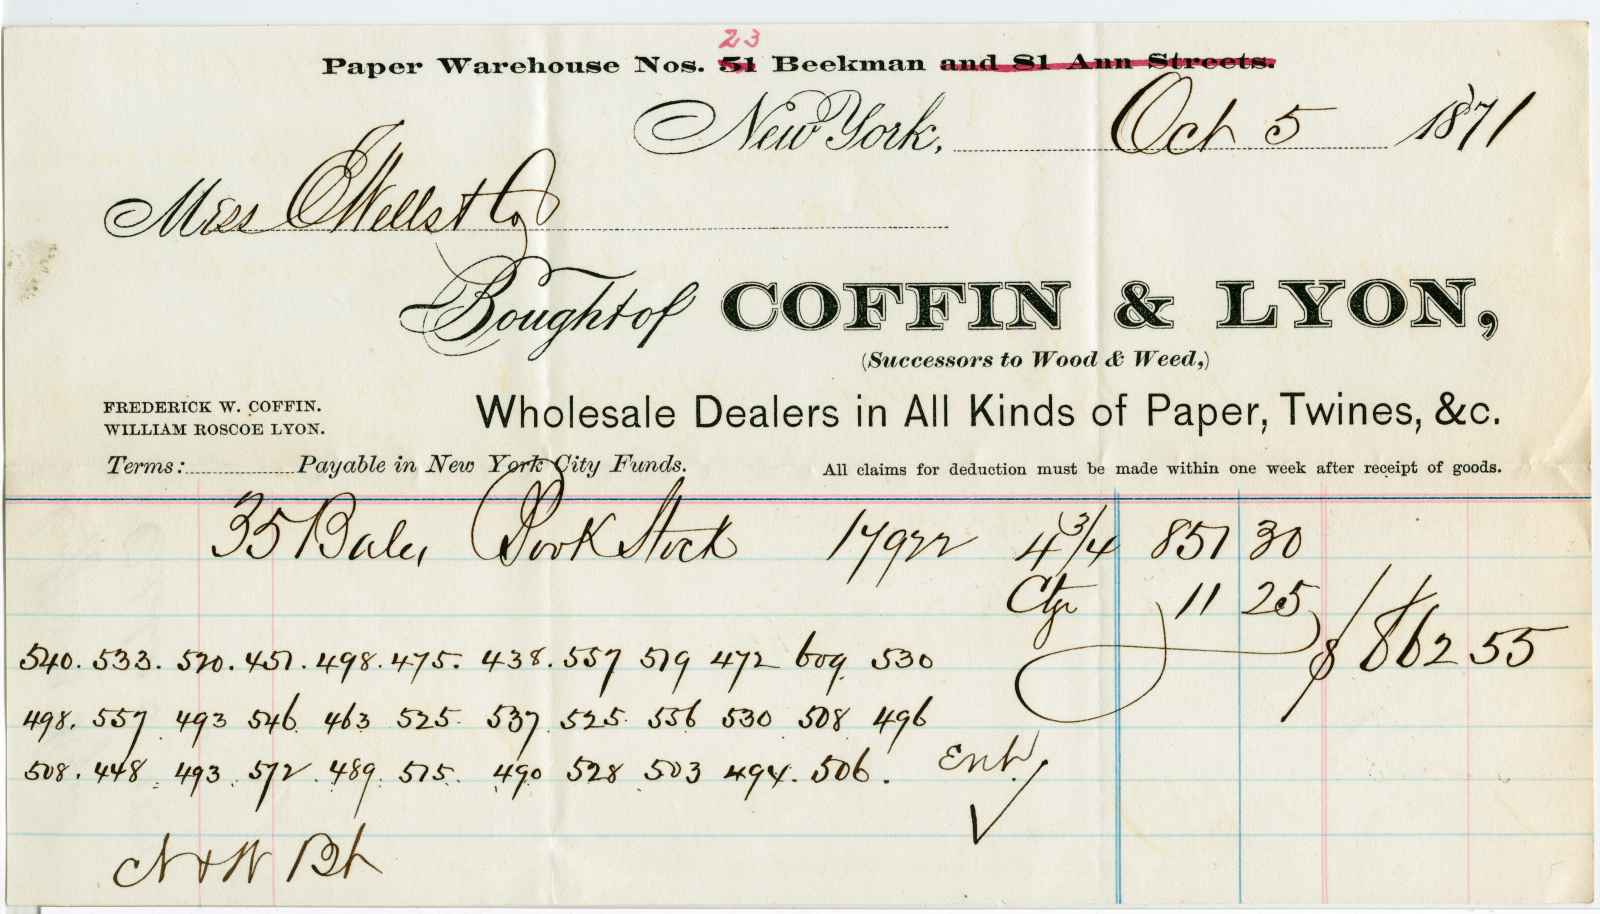 23
Paper Warehouse Nos. 51 Beekman and 81 Ann Streets.
New York, Oct 5 1871
Mess C Wells & Co
Bought of COFFIN & LYON,
(Successors to Wood & Weed,)
FREDERICK W. COFFIN.
WILLIAM ROSCOE LYON.
Wholesale Dealers in All Kinds of Paper, Twines, &c.
Terms: Payable in New York City Funds.
All claims for deduction must be made within one week after receipt of goods.
35 Bales Book Stock 17922 4 3/4 851 30
Ctge 11 25
$ 862 55
540. 533. 520. 451. 498. 475. 438. 557 519 472 609 530
498. 557 493 546 463 525. 537. 525. 556 530 508 496
508. 448 493. 572. 489. 515. 490 528 503 494. 506.
Ent.
N & W Bt